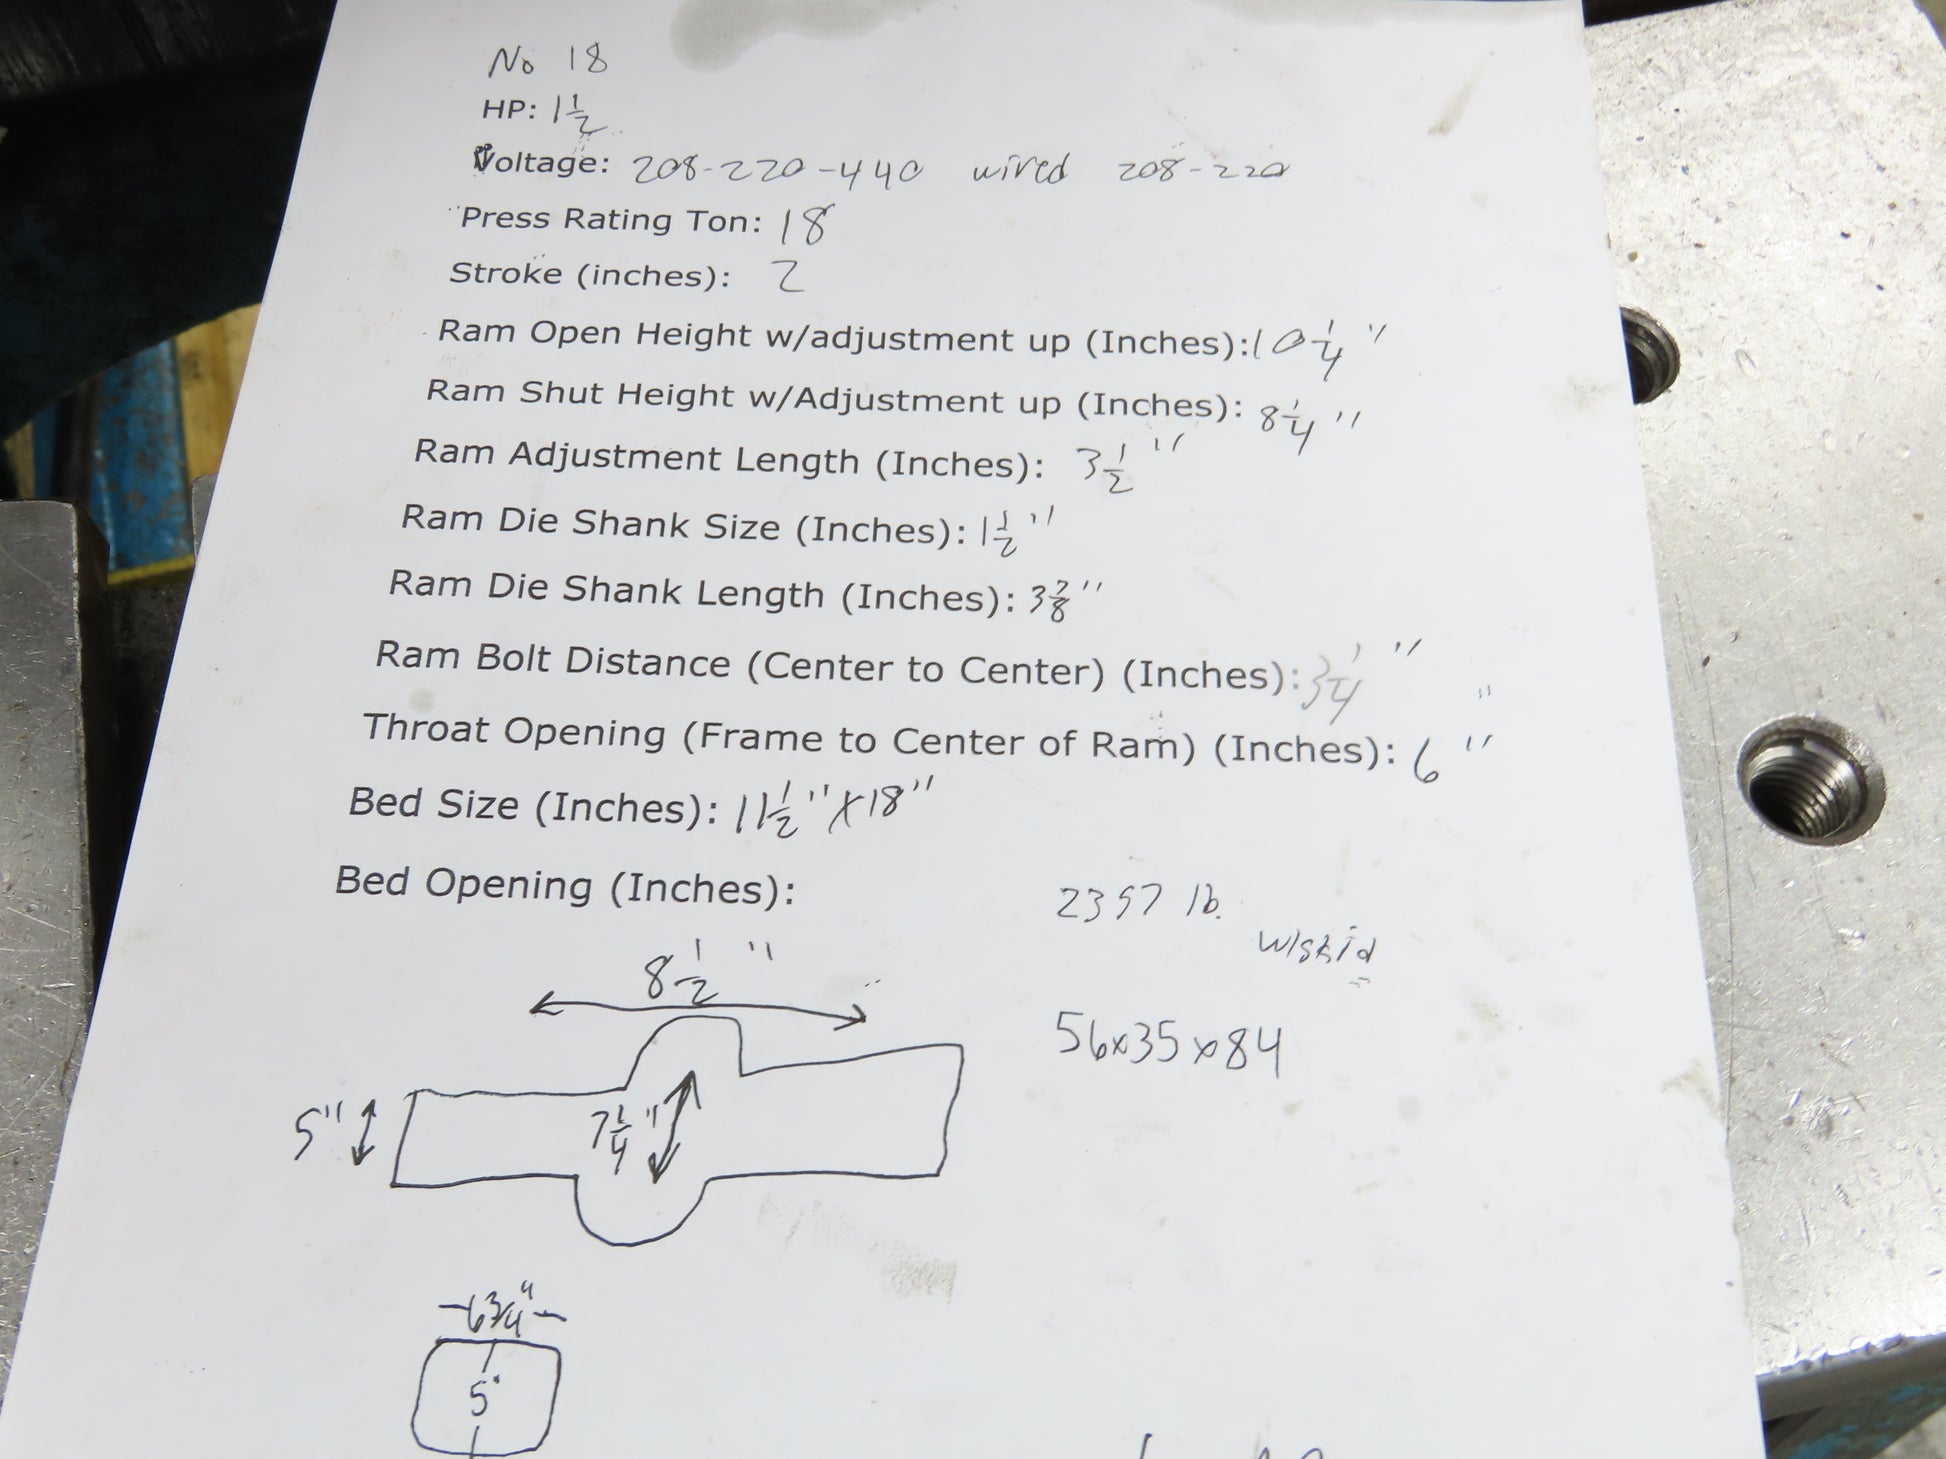 No 18
HP: 1 1/2
Voltage: 208-220-440 wired 208-220
Press Rating Ton: 18
Stroke (inches): 2
Ram Open Height w/adjustment up (Inches): 10 1/4 "
Ram Shut Height w/Adjustment up (Inches): 8 1/4 "
Ram Adjustment Length (Inches): 3 1/2 "
Ram Die Shank Size (Inches): 1 1/2 "
Ram Die Shank Length (Inches): 3 "
Ram Bolt Distance (Center to Center) (Inches): 3 1/4 "
Throat Opening (Frame to Center of Ram) (Inches): 6 "
Bed Size (Inches): 11 1/2 " x 18 "
Bed Opening (Inches):
2357 lb.
w/skid
8 1/2 "
56x35x84
5"
7 1/4 "
6 3/4"
5"